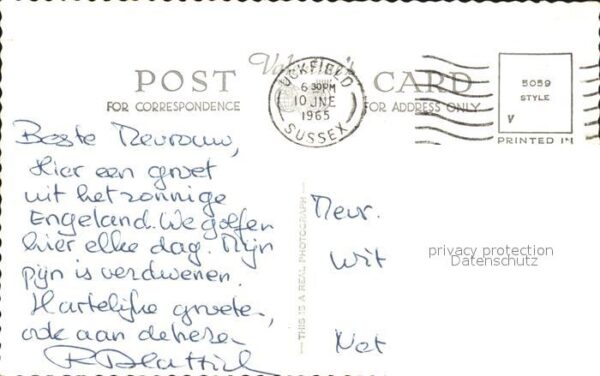 Valentine's
POST CARD
FOR CORRESPONDENCE
FOR ADDRESS ONLY
UCKFIELD
6-30PM
10 JNE
1965
SUSSEX
5059
STYLE
V
PRINTED IN
Beste Mevrouw,
Hier een groet
uit het zonnige
Engeland. We golfen
hier elke dag. Mijn
pijn is verdwenen.
Hartelijke groeten,
ook aan de heren
THIS IS A REAL PHOTOGRAPH
Mevr.
Wit
Net
privacy protection
Datenschutz